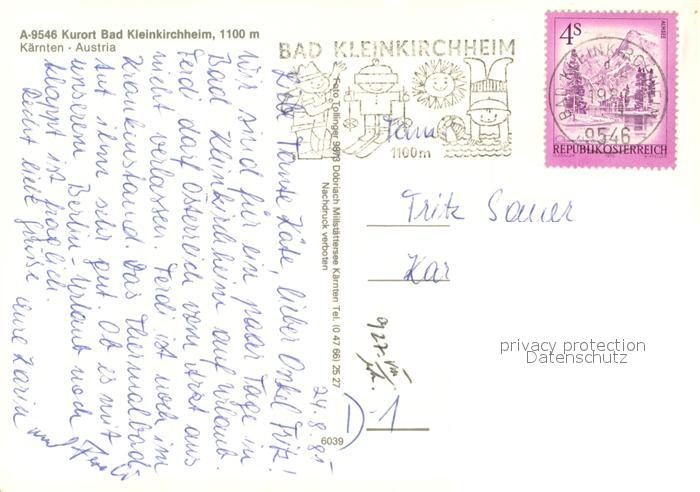 A-9546 Kurort Bad Kleinkirchheim, 1100 m
Kärnten - Austria
BAD KLEINKIRCHHEIM
1100m
4s
ALMSEE
BAD KLEINKIRCHHEIM
9546
REPUBLIK ÖSTERREICH
24.8.85
Liebe Tante Käte, lieber Onkel Fritz!
Wir sind für ein paar Tage in
Bad Kleinkirchheim auf Urlaub.
Ferdi darf Österreich vom Arzt aus
nicht verlassen. Ferdi ist noch im
Krankenstand. Das Thermalbad
tut ihm sehr gut. Ob es mit
unserem Berlin-Urlaub noch
klappt ist fraglich.
Recht liebe Grüsse
eure Karin und Ferdi
Foto Tollinger, 9873 Döbriach Millstättersee Kärnten Tel. (0 47 66) 25 27
Nachdruck verboten
6039
Fam.
Fritz Sauer
Kar
1
privacy protection
Datenschutz